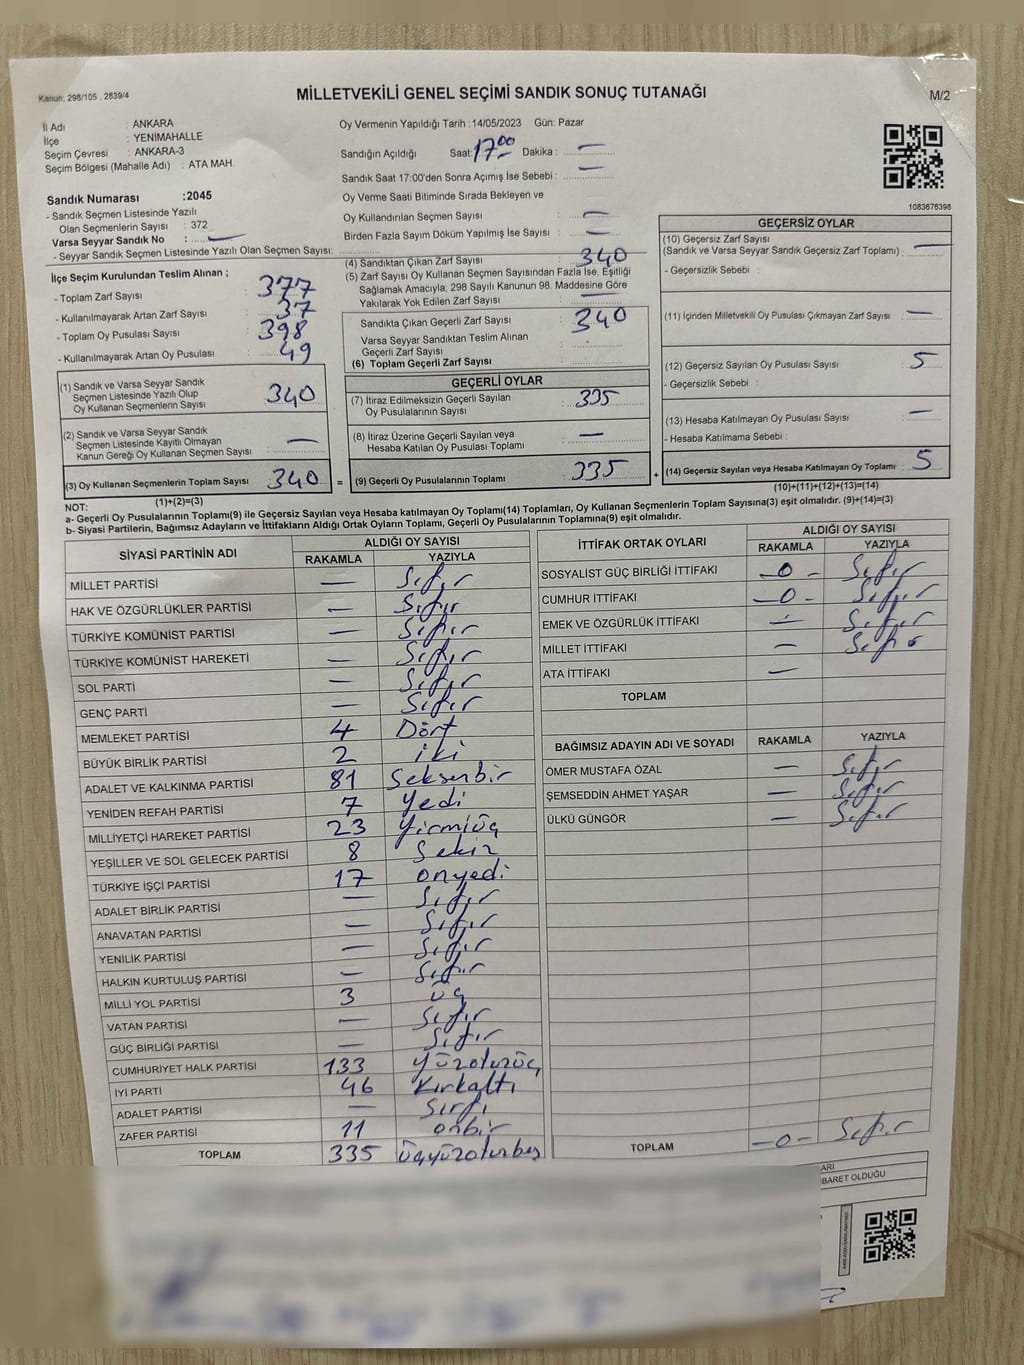 Kanun: 298/105 , 2839/4
MİLLETVEKİLİ GENEL SEÇİMİ SANDIK SONUÇ TUTANAĞI
M/2
İl Adı : ANKARA
İlçe : YENİMAHALLE
Seçim Çevresi : ANKARA-3
Seçim Bölgesi (Mahalle Adı) : ATA MAH.
Oy Vermenin Yapıldığı Tarih :14/05/2023 Gün: Pazar
Sandığın Açıldığı Saat: 17.00 Dakika : —
Sandık Saat 17:00'den Sonra Açımış İse Sebebi : —
Oy Verme Saati Bitiminde Sırada Bekleyen ve
Oy Kullandırılan Seçmen Sayısı : —
Birden Fazla Sayım Döküm Yapılmış İse Sayısı : —
1083676398
Sandık Numarası :2045
- Sandık Seçmen Listesinde Yazılı
Olan Seçmenlerin Sayısı : 372
Varsa Seyyar Sandık No : —
- Seyyar Sandık Seçmen Listesinde Yazılı Olan Seçmen Sayısı:
İlçe Seçim Kurulundan Teslim Alınan ;
- Toplam Zarf Sayısı : 377
- Kullanılmayarak Artan Zarf Sayısı : 37
- Toplam Oy Pusulası Sayısı : 398
- Kullanılmayarak Artan Oy Pusulası : 49
(1) Sandık ve Varsa Seyyar Sandık
Seçmen Listesinde Yazılı Olup
Oy Kullanan Seçmenlerin Sayısı : 340
(2) Sandık ve Varsa Seyyar Sandık
Seçmen Listesinde Kayıtlı Olmayan
Kanun Gereği Oy Kullanan Seçmen Sayısı : —
(3) Oy Kullanan Seçmenlerin Toplam Sayısı 340 =
(1)+(2)=(3)
(4) Sandıktan Çıkan Zarf Sayısı : 340
(5) Zarf Sayısı Oy Kullanan Seçmen Sayısından Fazla İse, Eşitliği
Sağlamak Amacıyla; 298 Sayılı Kanunun 98. Maddesine Göre
Yakılarak Yok Edilen Zarf Sayısı : —
Sandıkta Çıkan Geçerli Zarf Sayısı : 340
Varsa Seyyar Sandıktan Teslim Alınan
Geçerli Zarf Sayısı :
(6) Toplam Geçerli Zarf Sayısı
GEÇERLİ OYLAR
(7) İtiraz Edilmeksizin Geçerli Sayılan
Oy Pusulalarının Sayısı : 335
(8) İtiraz Üzerine Geçerli Sayılan veya
Hesaba Katılan Oy Pusulası Toplamı : —
(9) Geçerli Oy Pusulalarının Toplamı : 335 +
GEÇERSİZ OYLAR
(10) Geçersiz Zarf Sayısı
(Sandık ve Varsa Seyyar Sandık Geçersiz Zarf Toplamı) : —
- Geçersizlik Sebebi :
(11) İçinden Milletvekili Oy Pusulası Çıkmayan Zarf Sayısı : —
(12) Geçersiz Sayılan Oy Pusulası Sayısı : 5
- Geçersizlik Sebebi :
(13) Hesaba Katılmayan Oy Pusulası Sayısı : —
- Hesaba Katılmama Sebebi :
(14) Geçersiz Sayılan veya Hesaba Katılmayan Oy Toplamı : 5
(10)+(11)+(12)+(13)=(14)
NOT:
a- Geçerli Oy Pusulalarının Toplamı(9) ile Geçersiz Sayılan veya Hesaba katılmayan Oy Toplamı(14) Toplamları, Oy Kullanan Seçmenlerin Toplam Sayısına(3) eşit olmalıdır. (9)+(14)=(3)
b- Siyasi Partilerin, Bağımsız Adayların ve İttifakların Aldığı Ortak Oyların Toplamı, Geçerli Oy Pusulalarının Toplamına(9) eşit olmalıdır.
SİYASİ PARTİNİN ADI ALDIĞI OY SAYISI
RAKAMLA YAZIYLA
MİLLET PARTİSİ — Sıfır
HAK VE ÖZGÜRLÜKLER PARTİSİ — Sıfır
TÜRKİYE KOMÜNİST PARTİSİ — Sıfır
TÜRKİYE KOMÜNİST HAREKETİ — Sıfır
SOL PARTİ — Sıfır
GENÇ PARTİ — Sıfır
MEMLEKET PARTİSİ 4 Dört
BÜYÜK BİRLİK PARTİSİ 2 iki
ADALET VE KALKINMA PARTİSİ 81 Seksenbir
YENİDEN REFAH PARTİSİ 7 Yedi
MİLLİYETÇİ HAREKET PARTİSİ 23 Yirmiüç
YEŞİLLER VE SOL GELECEK PARTİSİ 8 Sekiz
TÜRKİYE İŞÇİ PARTİSİ 17 onyedi
ADALET BİRLİK PARTİSİ — Sıfır
ANAVATAN PARTİSİ — Sıfır
YENİLİK PARTİSİ — Sıfır
HALKIN KURTULUŞ PARTİSİ — Sıfır
MİLLİ YOL PARTİSİ 3 üç
VATAN PARTİSİ — Sıfır
GÜÇ BİRLİĞİ PARTİSİ — Sıfır
CUMHURİYET HALK PARTİSİ 133 yüzotuzüç
İYİ PARTİ 46 Kırkaltı
ADALET PARTİSİ — Sırfı
ZAFER PARTİSİ 11 onbir
TOPLAM 335 üçyüzotuzbeş
İTTİFAK ORTAK OYLARI ALDIĞI OY SAYISI
RAKAMLA YAZIYLA
SOSYALİST GÜÇ BİRLİĞİ İTTİFAKI —0— Sıfır
CUMHUR İTTİFAKI —0— Sıfır
EMEK VE ÖZGÜRLÜK İTTİFAKI — Sıfır
MİLLET İTTİFAKI — Sıfır
ATA İTTİFAKI —
TOPLAM
BAĞIMSIZ ADAYIN ADI VE SOYADI RAKAMLA YAZIYLA
ÖMER MUSTAFA ÖZAL — Sıfır
ŞEMSEDDİN AHMET YAŞAR — Sıfır
ÜLKÜ GÜNGÖR — Sıfır
TOPLAM —0— Sıfır
ARI
BARET OLDUĞU